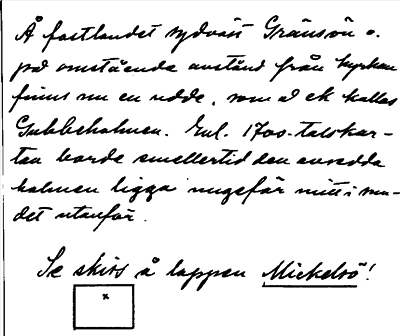 Å fastlandet sydväst Gränsön o.
på omstående avstånd från kyrkan
finns nu en udde, som å ek kallas
Gubbeholmen. Enl. 1700-talskar-
tan borde emellertid den avsedda
holmen ligga ungefär mitt i sun-
det utanför.
Se skiss å lappen Mickelsö!
x